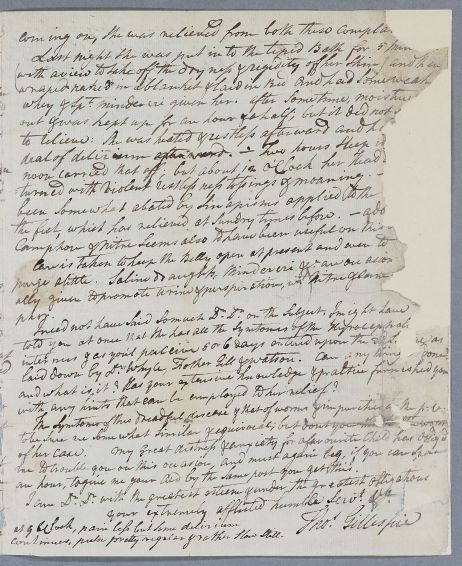 coming on, she was relieved from both these Compla
Last night she was put in to the tepid Bath for 5 min
with a view to take off the dryness & rigidity of her skin (and then
wraped naked in a blanket & laid in Bed and had some weak
whey & spt. minderere given her. after some time, moisture
out & was kept up for an hour & a half; but it did not
to relieve: she was heated & restless afterward and h
deal of delirium
noon carried that off; but about Clock her head
turned with violent restlessness tossings & moaning
been somewhat abated by sinapisms applied to th
the feet, which has relieved at sundry times before. - a do
Camphor & Nitre seems also to have been useful on this
Care is taken to keep the belly open at present and even to
purge a little. Saline draughts, Mindereri &c are occasion
ally given to promote urine & perspiration, with Nitre & Cam
phor.
I need not have said so much Dr. Dr. on the Subject, I might have
told you at once that she has all the Symtoms of the Hydrocephal:
internus & as you'll perceive 5 or 6 days entered upon the
laid down by Drs. Whytt, Fothergill & Watson. Can any thing be done
and what is it? Has your extensive knowledge & practice furnished you
with any hints that can be employed to her relief?
The Symtoms of this dreadful disease & that of worms & impurities in the p: v:
are somewhat similar & equivocal; but
of her case. My great distress & anxiety for a favourite Child has obliged
me to trouble you on this occasion, and must again beg, if you can spare
an hour, to give me your aid by the same post you get this.
I am Dr. Dr. with the greatest esteem & under the greatest obligations
your extremely afflicted humble Servt. &c
Thos. Gillespie
at 9 Clock, pain less but some delirium
continues, pulse pretty regular & rather slow still.